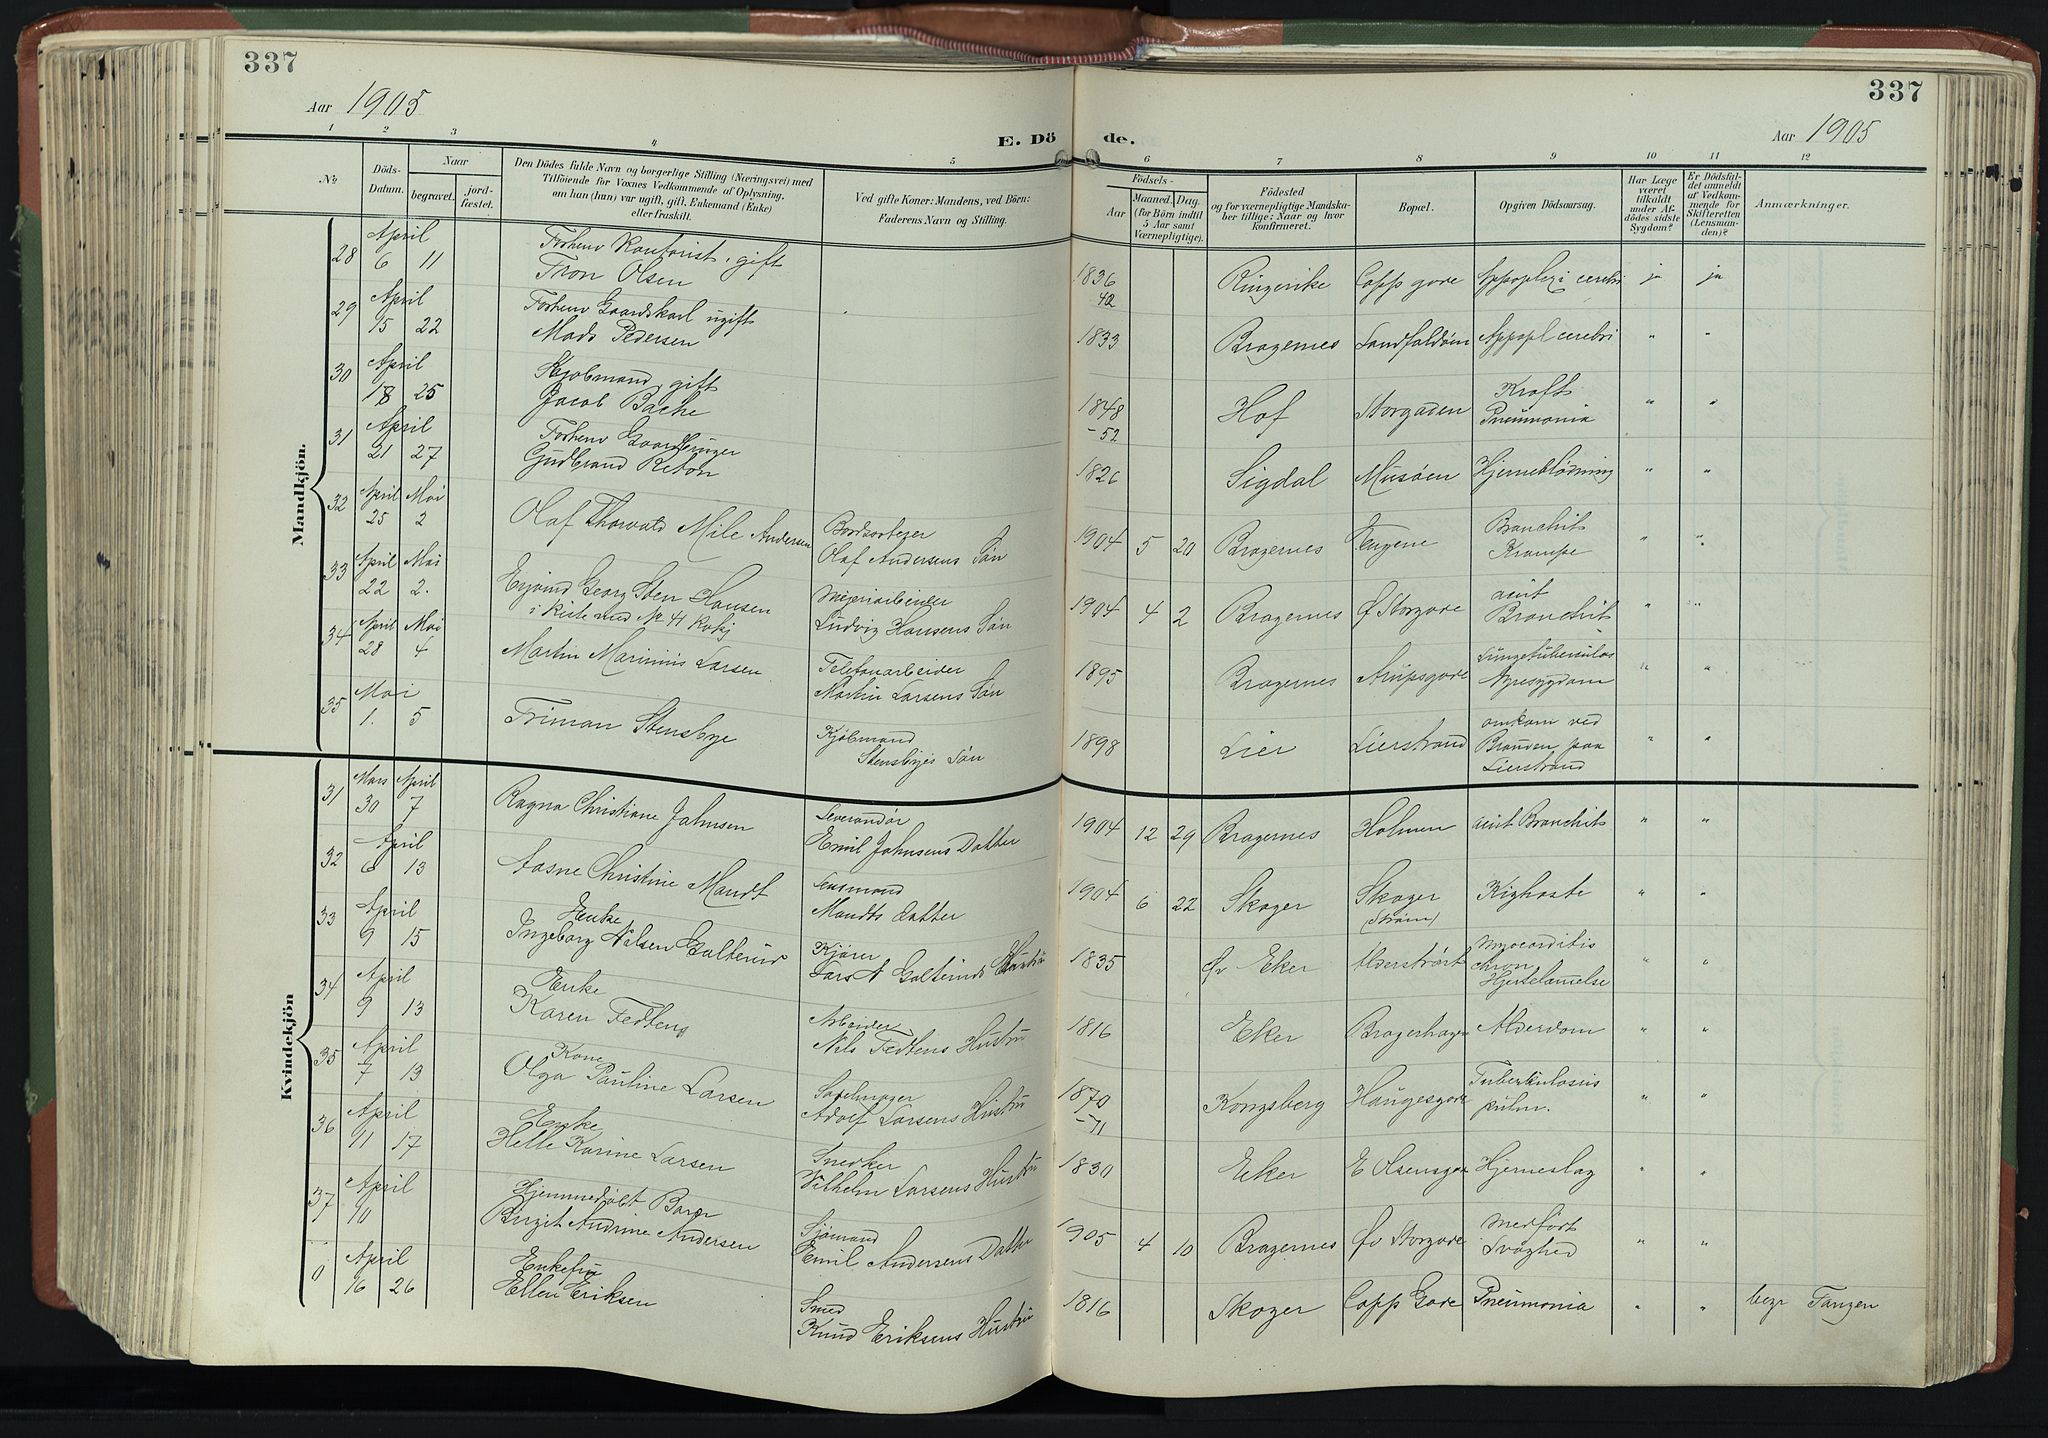 337
337
Aar 1905
Aar 1905
E. Dö
de.
1 2 3 4 5 6 7 8 9 10 11 12
No
Döds-
Datum.
Naar
begravet.
jord-
fæstet.
Den Dödes fulde Navn og borgerlige Stilling (Næringsvei) med
Tilföiende for Voxnes Vedkommende af Oplysning,
om han (hun) var ugift, gift, Enkemand (Enke)
eller fraskilt.
Ved gifte Koner: Mandens, ved Börn:
Faderens Navn og Stilling.
Födsels-
Aar
Maaned. Dag.
(for Börn indtil
5 Aar samt
Værnepligtige).
Födested
og for værnepligtige Mandska-
ber tillige: Naar og hvor
konfirmeret.
Bopæl.
Opgiven Dödsaarsag.
Har Læge
været
tilkaldt
under Af-
dödes sidste
Sygdom?
Er Dödsfal-
det anmeldt
af Vedkom-
mende for
Skifteretten
(Lensman-
den)?
Anmærkninger.
Mandkjön.
28 April 6 11 Forhenv Kontorist, gift
Tron Olsen 1836 Ringerike Capp gade Appoplexi cerebri ja ja
42
29 April 15 22 Forhenv Gaardskarl ugift
Mads Pedersen 1833 Bragernes Landfaldøen Appopl cerebri " "
30 April 18 25 Kjøbmand, gift
Jacob Bache 1848 Hof Storgaden Kroft Pneumonia " "
-52
31 April 21 27 Forhenv Gaardbruger
Gudbrand 1826 Sigdal Musøen Hjerneblødning " "
32 April 25 Mai 2 Olaf Thorvald Mile Andersen Bordsorterer
Olaf Andersens Søn 1904 5 20 Bragernes Eugene Bronchit Krampe " "
33 April 22 Mai 2. Eyvind Georg Sten Hansen
i Kiste med No 41 Kvkj Meieriarbeider
Ludvig Hansens Søn 1904 4 2 Bragernes Ø Storgade acut Bronchit " "
34 April 28 Mai 4 Martin Marinius Larsen Telefonarbeider
Martin Larsens Søn 1895 Bragernes Arupsgade Lungetuberculos Nyresygdom " "
35 Mai 1. 5 Triman Stensbye Kjøbmand
Stensbyes Søn 1898 Lier Lierstrand omkom ved
Branden paa
Lierstrand " "
Kvindekjön
31 Mars 30 April 7 Ragna Christiane Jahnsen Leverandør
Emil Jahnsens Datter 1904 12 29 Bragernes Holmen acut Bronchit " "
32 April 6 13 Aasne Christine Mandt Lensmand
Mandts datter 1904 6 22 Skoger Skoger
(Strøm) Kighoste " "
33 April 9 15 Enke
Ingeborg Nilsen Golterud Kjører
Lars N Golteruds Hustru 1835 Øv Eker Alderstrøst Myocarditis
chron
Hjertelamelse " "
34 April 9 13 Enke
Karen Fedteng Arbeider
Nils Fedtens Hustru 1816 Eker Bragerhagen Alderdom " "
35 April 7 13 Kone
Olga Pauline Larsen Sadelmager
Adolf Larsens Hustru 1870 Kongsberg Haugesgade Tuberkulosis
pulm. " "
-71
36 April 11 17 Enke
Helle Karine Larsen Snedker
Vilhelm Larsens Hustru 1830 Eker E Olsensgade Hjerneslag " "
37 April 10 Hjemmedøbt Barn
Birgit Andrine Andersen Sjømand
Emil Andersens Datter 1905 4 10 Bragernes Øv Storgade Medfødt
Svaghed " "
0 April 16 26 Enkefru
Ellen Eriksen Smed
Knud Eriksens Hustru 1816 Skoger Capp Gade Pneumonia " " begr Tangen